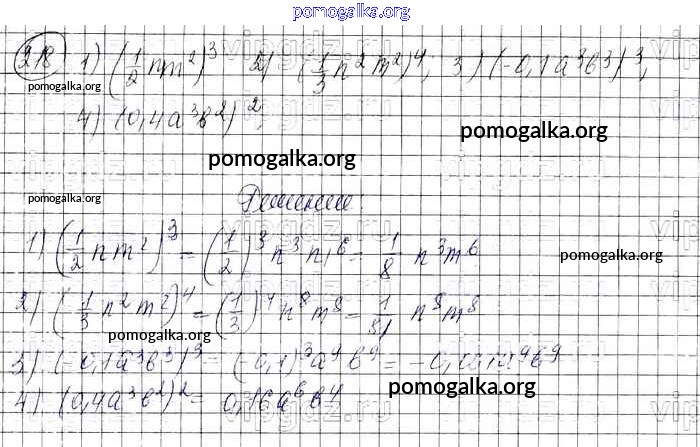 pomogalka.org
218 1) (1/2 nm²)³ 2) (1/3 n²m²)⁴; 3) (-0,1a³b³)³,
pomogalka.org
4) (0,4a³b²)²
pomogalka.org
pomogalka.org
pomogalka.org
Решение
1) (1/2 nm²)³ = (1/2)³n³m⁶ = 1/8 n³m⁶
pomogalka.org
2) (1/3 n²m²)⁴ = (1/3)⁴n⁸m⁸ = 1/81 n⁸m⁸
pomogalka.org
3) (-0,1a³b³)³ = (-0,1)³a⁹b⁹ =
pomogalka.org
4) (0,4a³b²)² = 0,16a⁶b⁴
pomogalka.org